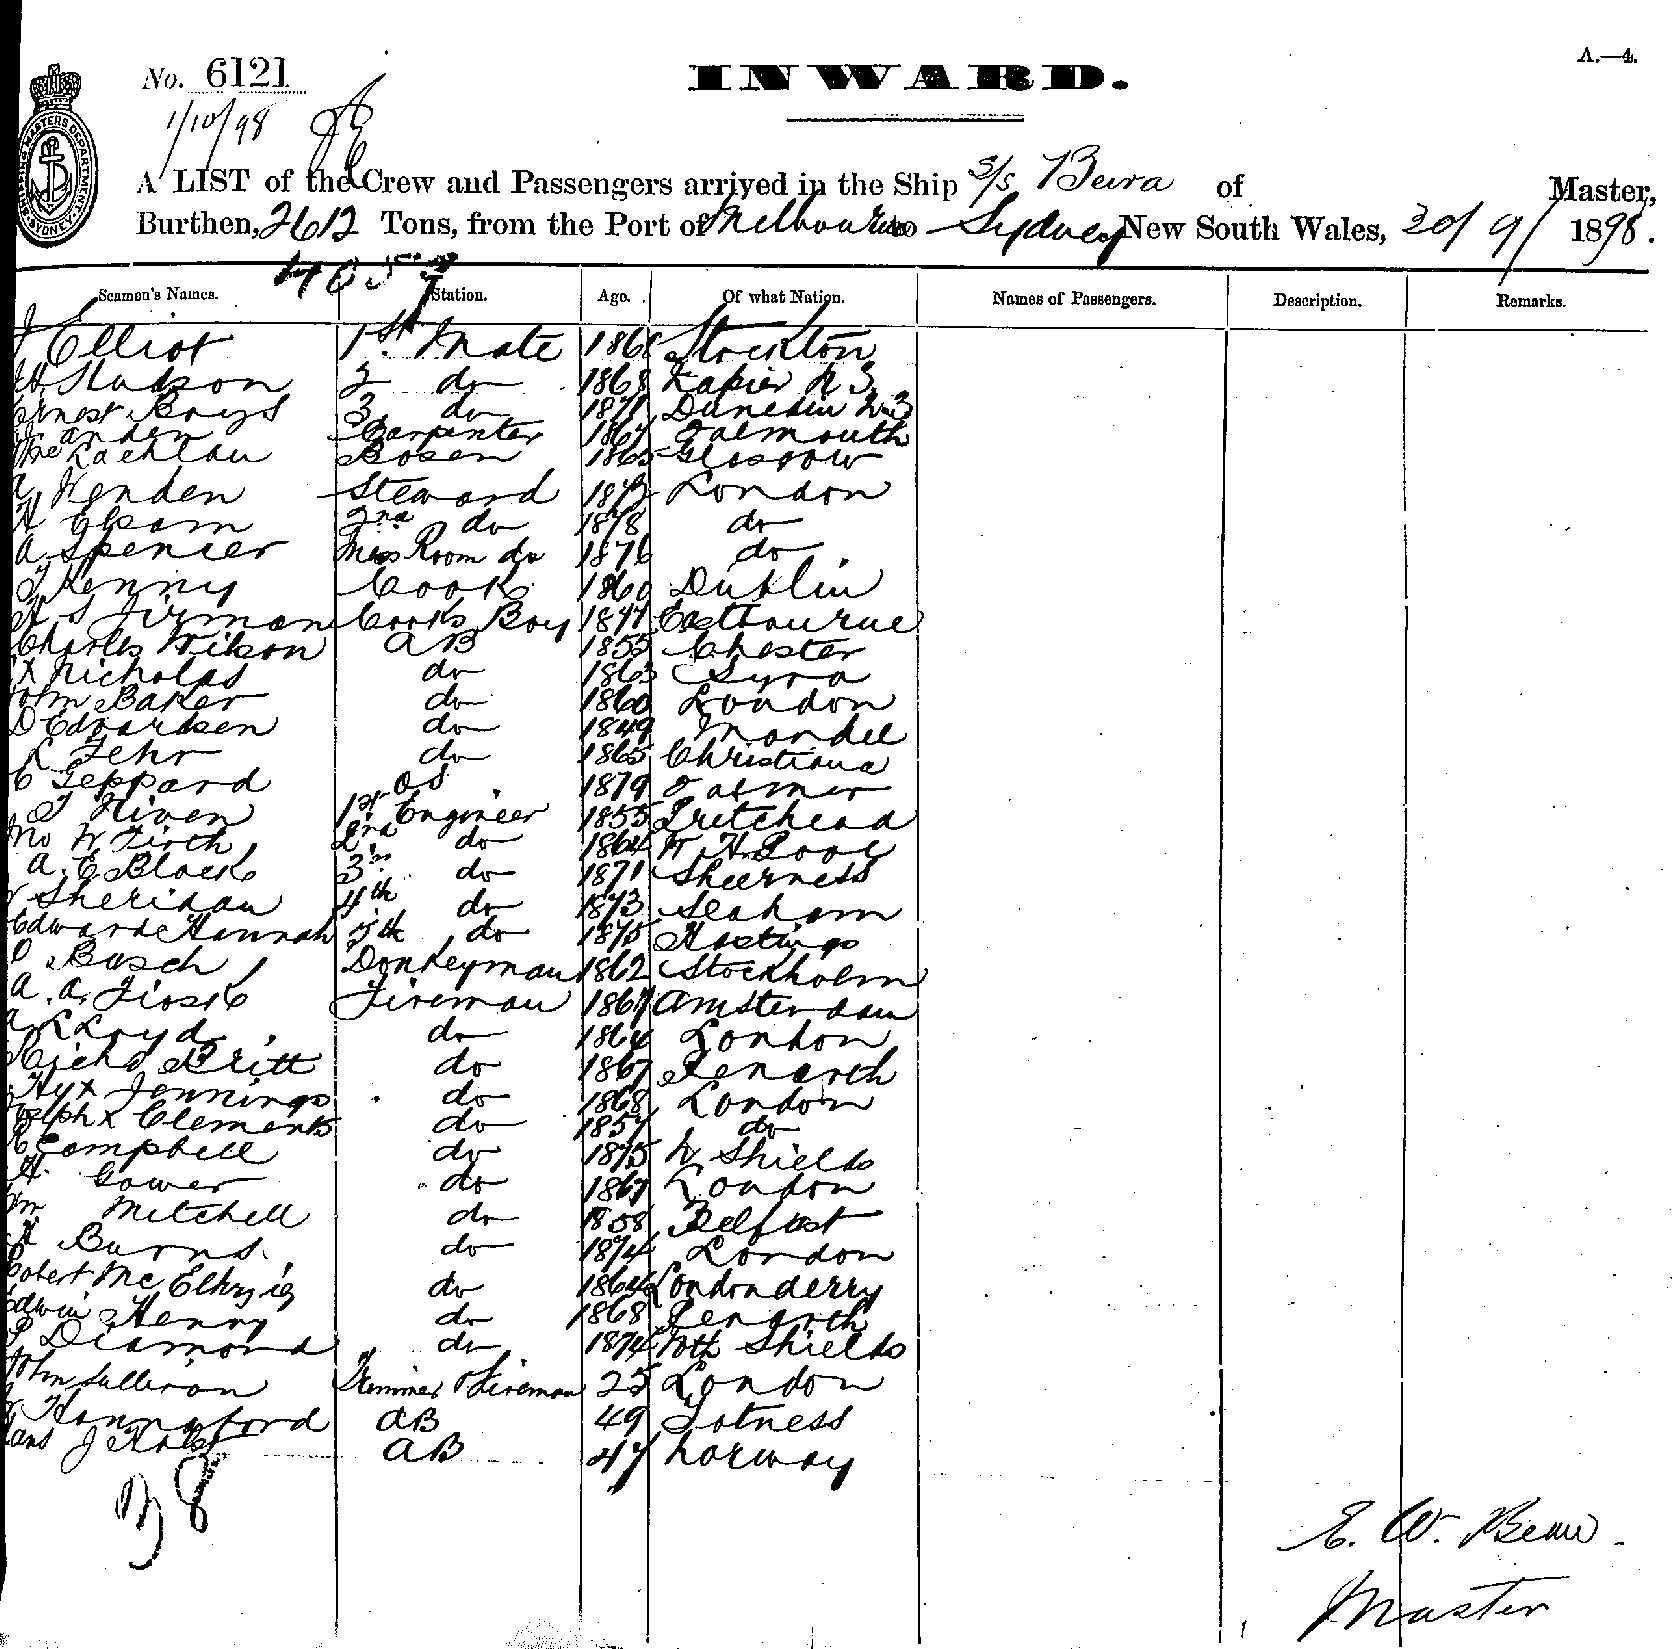 A.—4.
No. 6121
INWARD.
1/10/98
SHIPPING MASTERS DEPARTMENT SYDNEY
A LIST of the Crew and Passengers arrived in the Ship S/s Beira of Master,
Burthen, 2612 Tons, from the Port of Melbourne to Sydney New South Wales, 30/9/1898.
4057
Seamen's Names. Station. Age. Of what Nation. Names of Passengers. Description. Remarks.
J Elliot 1st Mate 1868 Stockton
Hudson 2 do 1868 Napier N Z
Ernest Boys 3 do 1871 Dunedin N Z
Carpenter 1867 Falmouth
McLachlan Bosen 1865 Glasgow
Henden Steward 1873 London
H Gleam 2nd do 1878 do
A Spencer Mess Room do 1876 do
T Kenny Cook 1860 Dublin
H S Firman Cooks Boy 1877 Eastbourne
Charles Wilson AB 1855 Chester
X Nicholas do 1863 Syra
John Baker do 1860 London
D Edvardsen do 1849 Mandel
Fehr do 1865 Christiana
C Geppard OS 1879 Falmer
T Niven 1st Engineer 1855
Jno W Firth 2nd do 1864 W H Pool
A. E Black 3rd do 1871 Sheerness
Sheridan 4th do 1873 Seaham
Edward Hannah 5th do 1875 Hastings
Basch Donkeyman 1862 Stockholm
A. A. Fireman 1867 Amsterdam
Lloyd do 1864 London
Richd Britt do 1867 Penarth
Hy X Jennings do 1868 London
X Clements do 1857 do
Campbell do 1875 N Shields
H Gower do 1867 London
Wm Mitchell do 1858 Belfast
H Burns do 1874 London
Robert do 1864 Londonderry
Edwin Henry do 1868 Penarth
Diamond do 1874 Nth Shields
John Sullivan Trimmer & Fireman 25 London
Hannaford AB 49 Totness
Hans J AB 47 Norway
38
E. W. Beau
Master